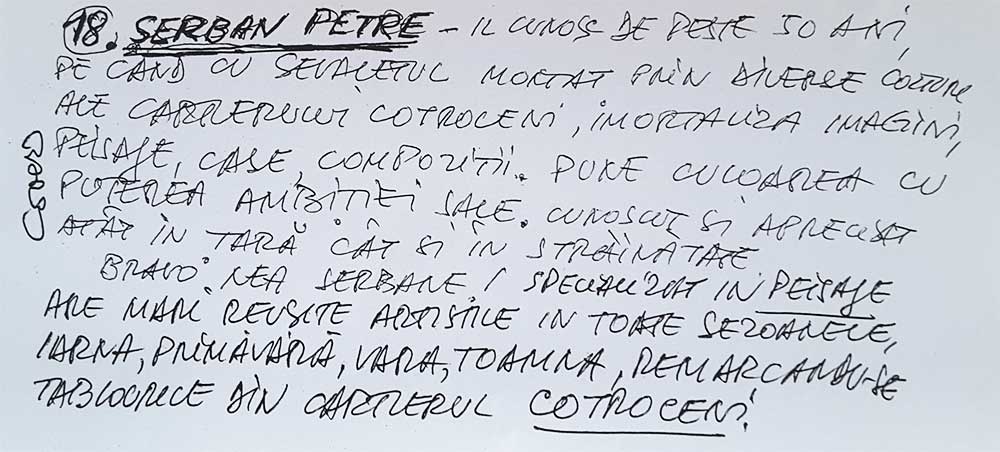 18. SERBAN PETRE - IL CUNOSC DE PESTE 50 ANI,
PE CAND CU SEVALETUL MONTAT PRIN DIVERSE COLTURI
ALE CARTIERULUI COTROCENI, IMORTALIZA IMAGINI,
PEISAJE, CASE, COMPOZITII. PUNE CULOAREA CU
PUTEREA AMBITIEI SALE. CUNOSCUT SI APRECIAT
ATÂT IN TARĂ CÂT SI ÎN STRĂINĂTATE
BRAVO NEA SERBANE! SPECIALIZAT IN PEISAJE
ARE MARI REUSITE ARTISTICE IN TOATE SEZOANELE,
IARNA, PRIMĂVARĂ, VARA, TOAMNA, REMARCANDU-SE
TABLOURILE DIN CARTIERUL COTROCENI.